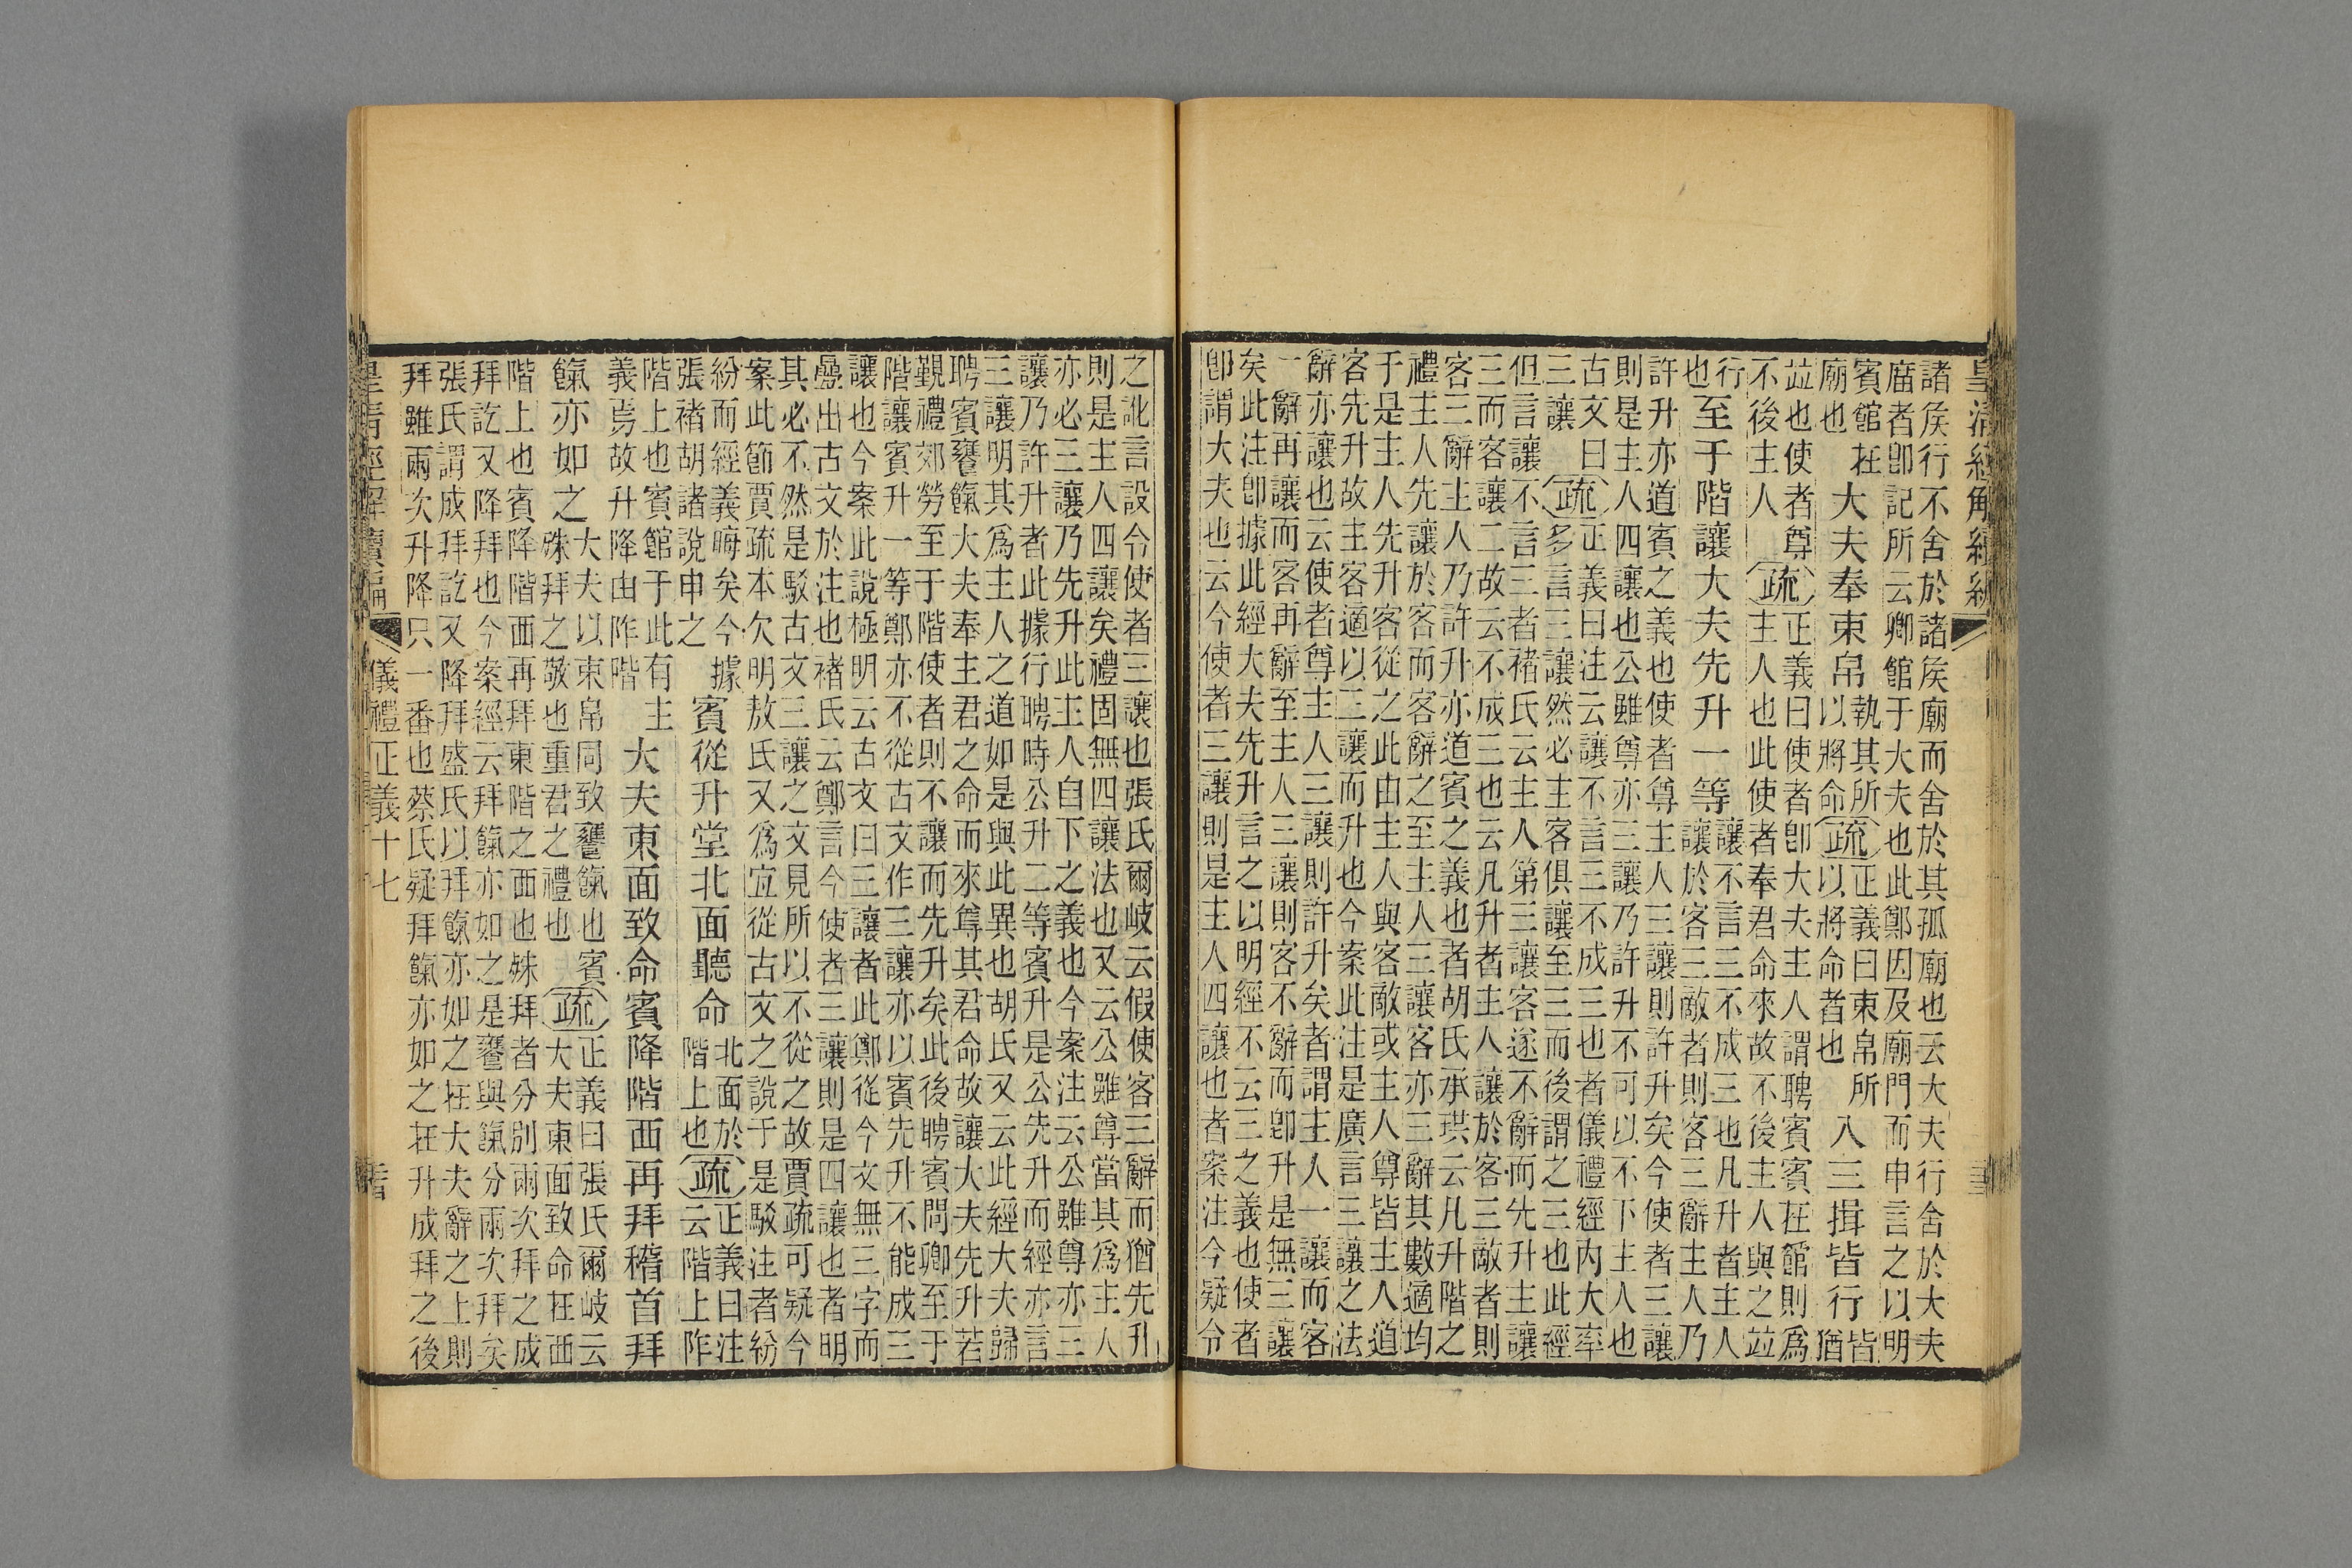 諸矦行不舍於諸矦廟而舍於其孤廟也云大夫行舍於大夫
廟者卽記所云卿館于大夫也此鄭因及廟門而申言之以明
賓館在
廟也
大夫奉束帛
執其所
以將命
疏
正義曰東帛所
以將命者也
入三揖皆行
皆
猶
並也使者尊
不後主人
疏
正義曰使者卽大夫主人謂聘賓賓在館則爲
主人也此使者奉君命來故不後主人與之並
行
也
至于階讓大夫先升一等
讓不言三不成三也凡升者主人
讓於客三敵者則客三辭主人乃
許升亦道賓之義也使者尊主人三讓則許升矣今使者三讓
則是主人四讓也公雖尊亦三讓乃許升不可以不下主人也
古文曰
三讓
疏
正義曰注云讓不言三不成三也者儀禮經內大率
多言三讓然必主客俱讓至三而後謂之三也此經
但言讓不言三者褚氏云主人第三讓客遂不辭而先升主讓
三而客讓二故云不成三也云凡升者主人讓於客三敵者則
客三辭主人乃許升亦道賓之義也者胡氏承珙云凡升階之
禮主人先讓於客而客辭之至主人三讓客亦三辭其數適均
于是主人先升客從之此由主人與客敵或主人尊皆主人道
客先升故主客適以三讓而升也今案此注是廣言三讓之法
辭亦讓也云使者尊主人三讓則許升矣者謂主人一讓而客
一辭再讓而客再辭至主人三讓則客不辭而卽升是無三讓
矣此注卽據此經大夫先升言之以明經不云三之義也使者
卽謂大夫也云今使者三讓則是主人四讓也者案注今疑令
之訛言設令使者三讓也張氏爾岐云假使客三辭而猶先升
則是主人四讓矣禮固無四讓法也又云公雖尊當其爲主人
亦必三讓乃先升此主人自下之義也今案注云公雖尊亦三
讓乃許升者此據行聘時公升二等賓升是公先升而經亦言
三讓明其爲主人之道如是與此異也胡氏又云此經大夫歸
聘賓饔餼大夫奉主君之命而來尊其君命故讓大夫先升若
覲禮郊勞至于階使者則不讓而先升矣此後聘賓問卿至于
階讓賓升一等鄭亦不從古文作三讓亦以賓先升不能成三
讓也今案此說極明云古文曰三讓者此鄭從今文無三字而
疊出古文於注也褚氏云鄭言今使者三讓則是四讓也者明
其必不然是駁古文三讓之文見所以不從之故賈疏可疑今
案此節賈疏本欠明敖氏又爲宜從古文之說于是駁注者紛
紛而經義晦矣今據
張褚胡諸說申之
賓從升堂北面聽命
北面於
階上也
疏
正義曰注
云階上阼
階上也賓館于此有主
義焉故升降由阼階
大夫東面致命賓降階西再拜稽首拜
餼亦如之
大夫以東帛同致饔餼也賓
殊拜之敬也重君之禮也
疏
正義曰張氏爾岐云
大夫東面致命在西
階上也賓降階西再拜東階之西也殊拜者分別兩次拜之成
拜訖又降拜也今案經云拜餼亦如之是饔與餼分兩次拜矣
張氏謂成拜訖又降拜盛氏以拜餼亦如之在大夫辭之上則
拜雖兩次升降只一番也蔡氏疑拜餼亦如之在升成拜之後
皇清經解續編
儀禮正義十七